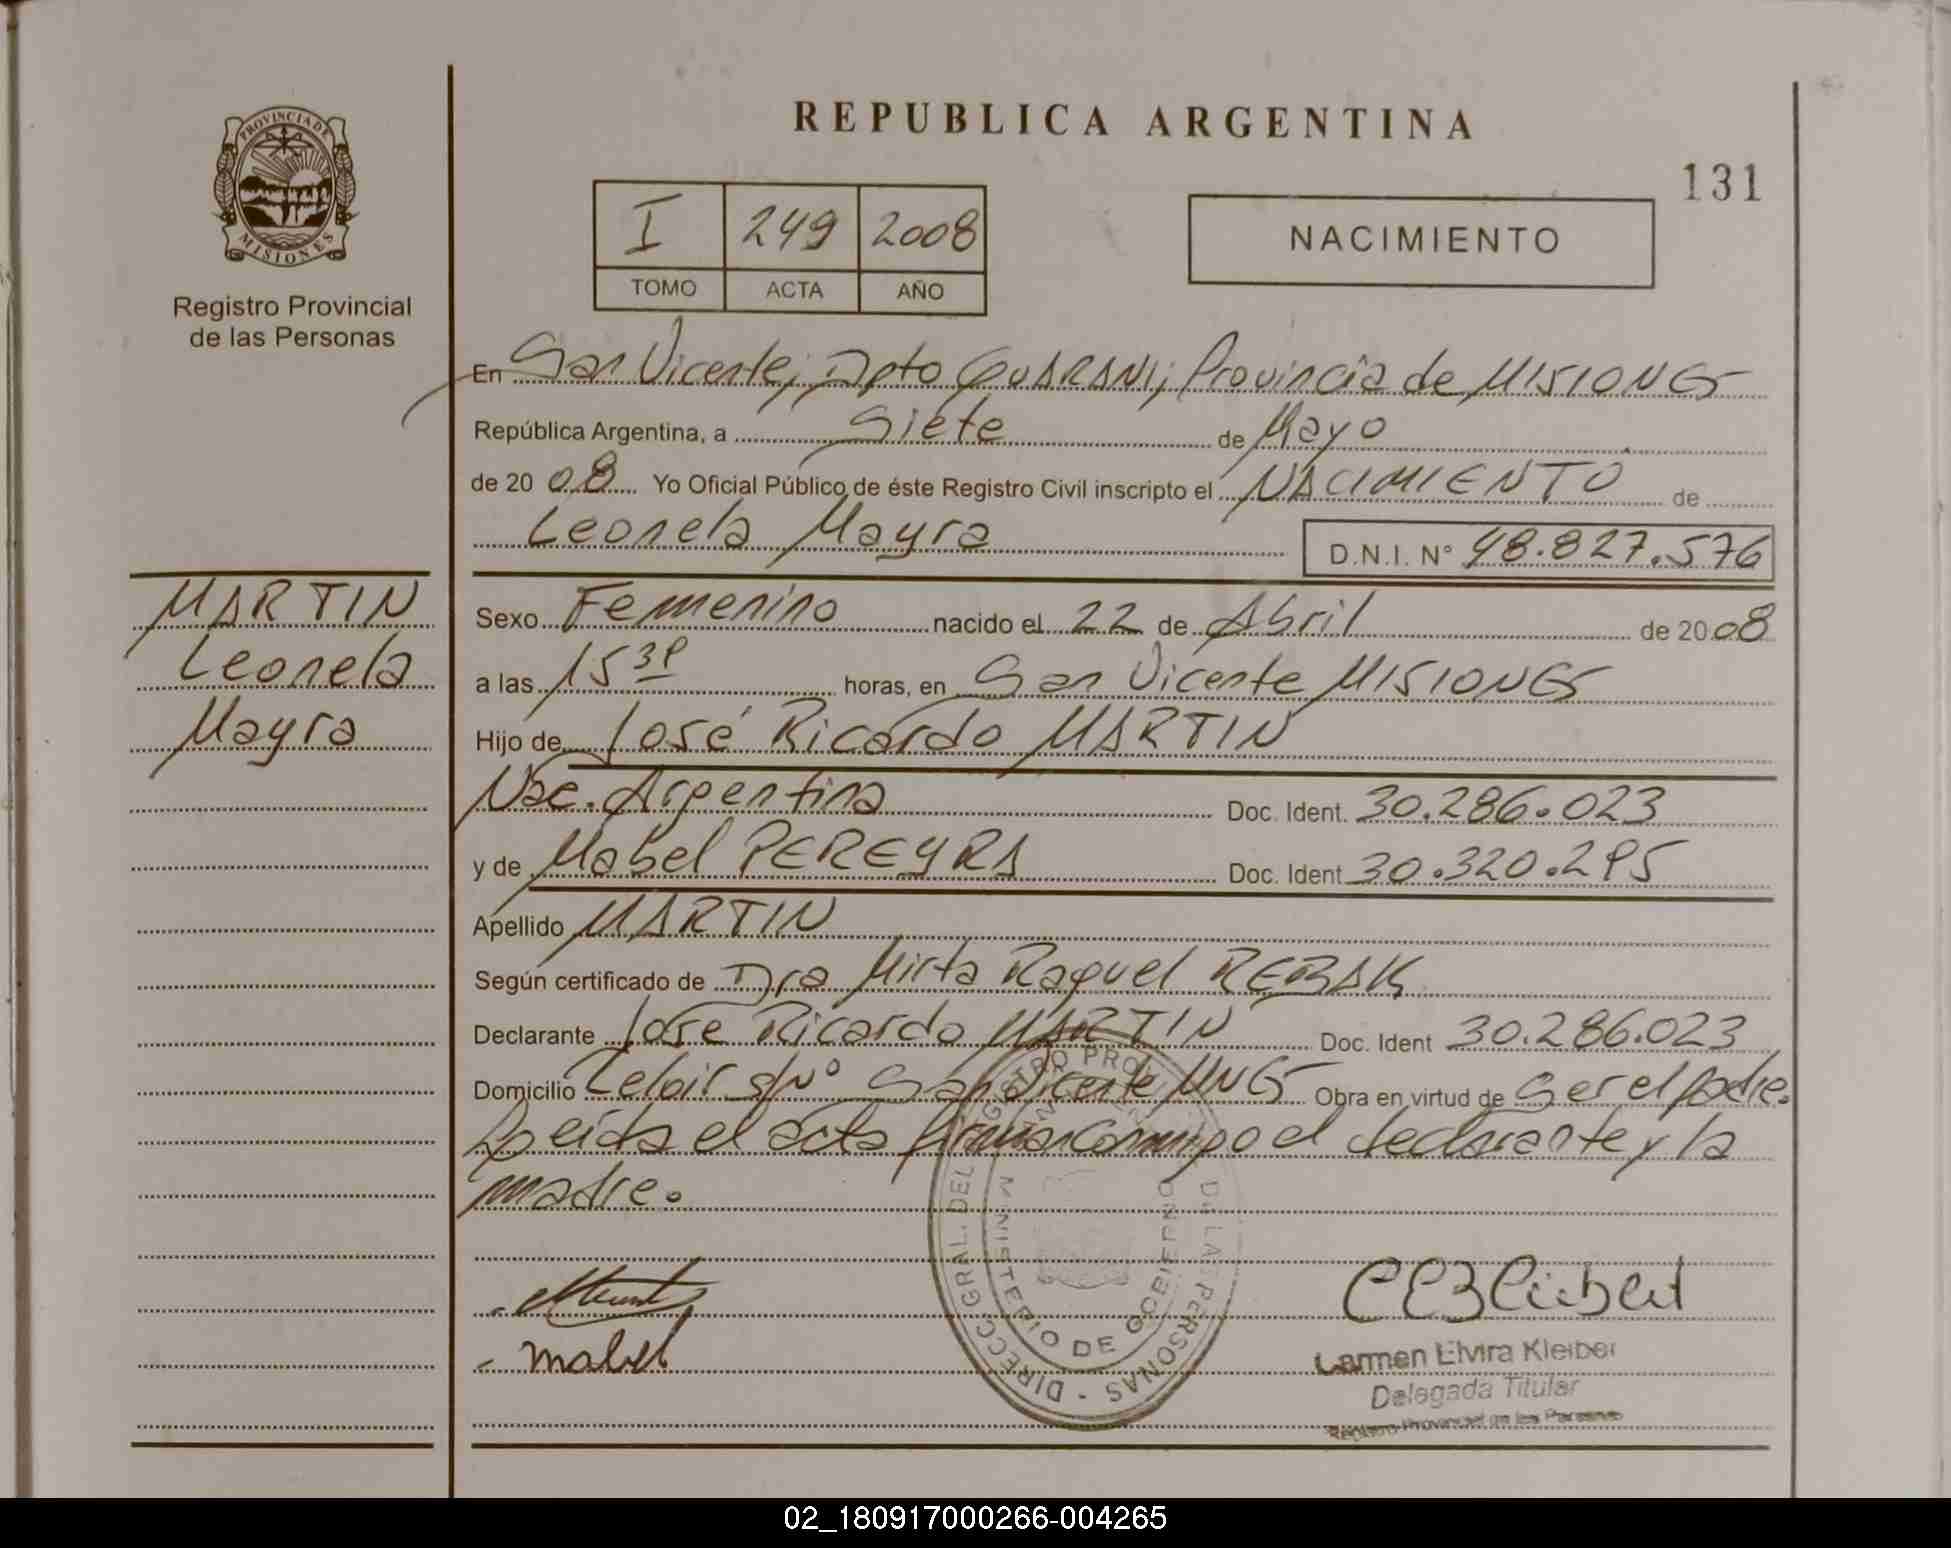 REPUBLICA ARGENTINA
131
PROVINCIA DE
MISIONES
Registro Provincial
de las Personas
I 249 2008
TOMO ACTA AÑO
NACIMIENTO
En San Vicente, Dpto GUARANI, Provincia de MISIONES
República Argentina, a Siete de Mayo
de 20 08 Yo Oficial Público de éste Registro Civil inscripto el NACIMIENTO de
Leonela Mayra D.N.I. N° 48.827.576
MARTIN
Leonela
Mayra
Sexo Femenino nacido el 22 de Abril de 20 08
a las 15 horas, en San Vicente MISIONES
Hijo de José Ricardo MARTIN
Nac. Argentina Doc. Ident. 30.286.023
y de Mabel PEREYRA Doc. Ident 30.320.295
Apellido MARTIN
Según certificado de Dra Mirta Raquel REBAK
Declarante Jose Ricardo MARTIN Doc. Ident 30.286.023
Domicilio Leloir s/n° San Vicente MNES Obra en virtud de Ser el padre.
Leida el acta firman conmigo el declarante y la
madre.
DIRECC. GRAL. DEL REGISTRO PROV. DE LAS PERSONAS
MINISTERIO DE GOBIERNO
Mabel
Carmen Elvira Kleiber
Delegada Titular
Registro Provincial de las Personas
02_180917000266-004265